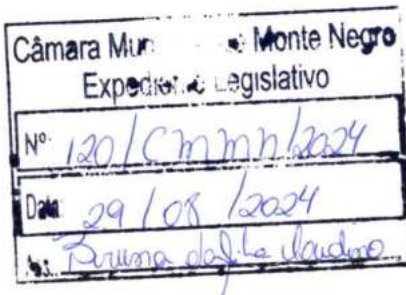 Câmara Mun Monte Negro
Expediente Legislativo
Nº 120/CMMN/2024
Data: 29/08/2024
Bruna